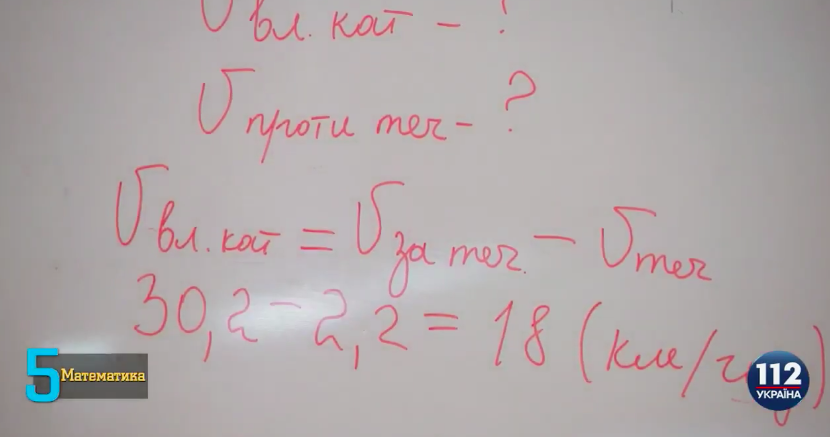 V вл. кат - ?
V проти теч - ?
V вл. кат = V за теч. - V теч
30,2 - 2,2 = 18 (км/год)
5 Математика
112 УКРАЇНА